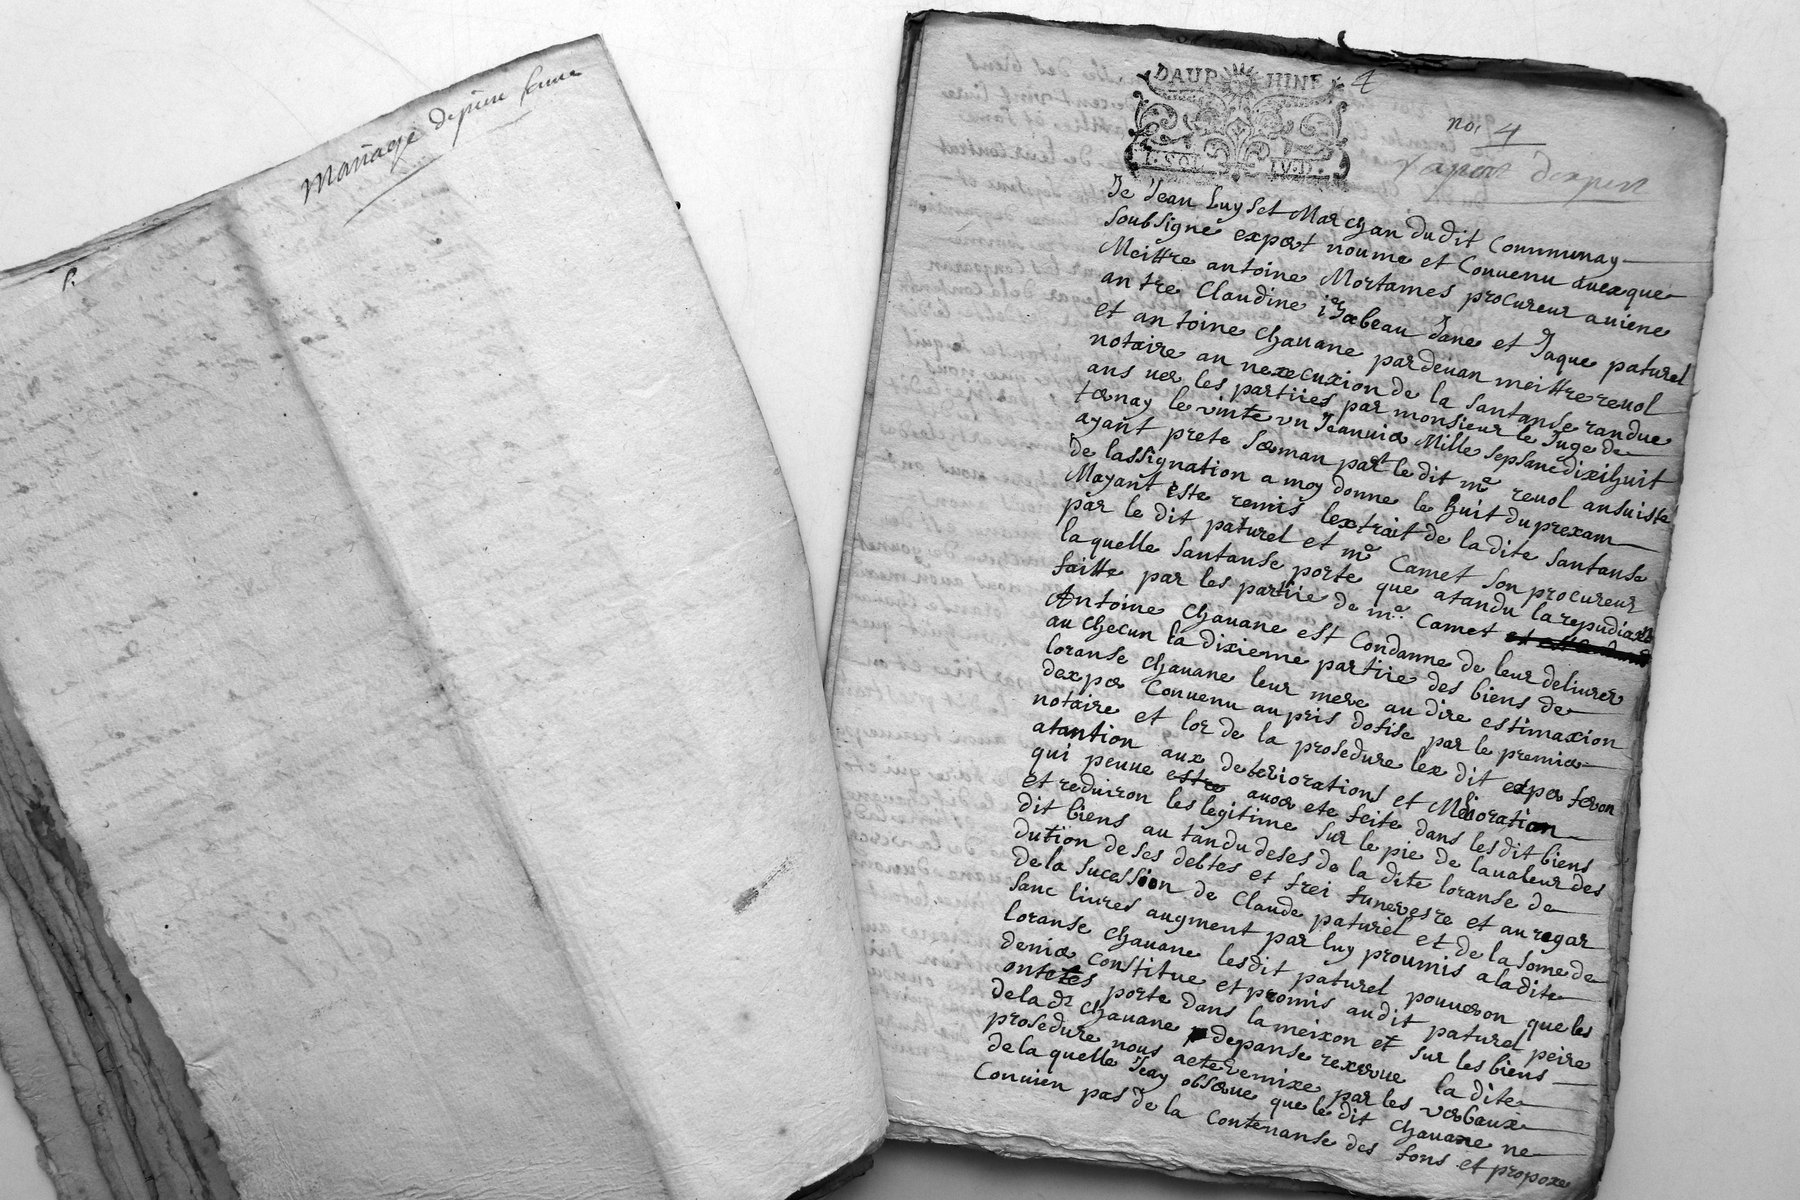 Mariage de pierre faure
DAUPHINE
1. SOL IV.D.
4
no. 4
Raport dexpert
Je Jean Luyset Marchan du dit Communay
soubsigne expert noume et Conuenu auexque
Meittre antoine Mortames procureur a uiene
antre Claudine isabeau Jane et Jaque paturel
et antoine chauane pardeuan meittre reuol
notaire an nexecuxion de la santanse randue
ans uer les partiies par monsieur le Juge de
ternay le vinte vn Jeanuier Mille sepsanc dixihuit
ayant prete serman part le dit me reuol ansuiste
de lassignation a moy donne le huit du prexam
Mayant este remis lextrait de la dite santanse
par le dit paturel et me Camet son procureur
laquelle santanse porte que atandu la repudiaxion
faitte par les partiie de me Camet
Antoine chauane est Condanne de leur deliurer
au checun la dixieme partiie des biens de
loranse chauane leur mere au dire estimaxion
dexper Conuenu au pris dofise par le premier
notaire et lor de la prosedure lex dit exper feron
atantion aux deteriorations et Melioration
qui peuue estre auoer ete feite dans les dit biens
et reduiron les legitime sur le pie de la ualeur des
dit biens au tandu deses de la dite loranse de
dution de ses debtes et frei funerere et au regar
de la sucession de Claude paturel et de la some de
sanc liures augment par luy proumis a la dite
loranse chauane les dit paturel pouueron que les
denier constitue et promis au dit paturel peire
ontetes porte dans la meixon et sur les biens
de la dt chauane depanse rexerue la dite
prosedure nous aete remixe par les verbaux
de la quelle Jeay obserue que le dit chauane ne
Conuien pas de la Contenanse des fons et propoxe